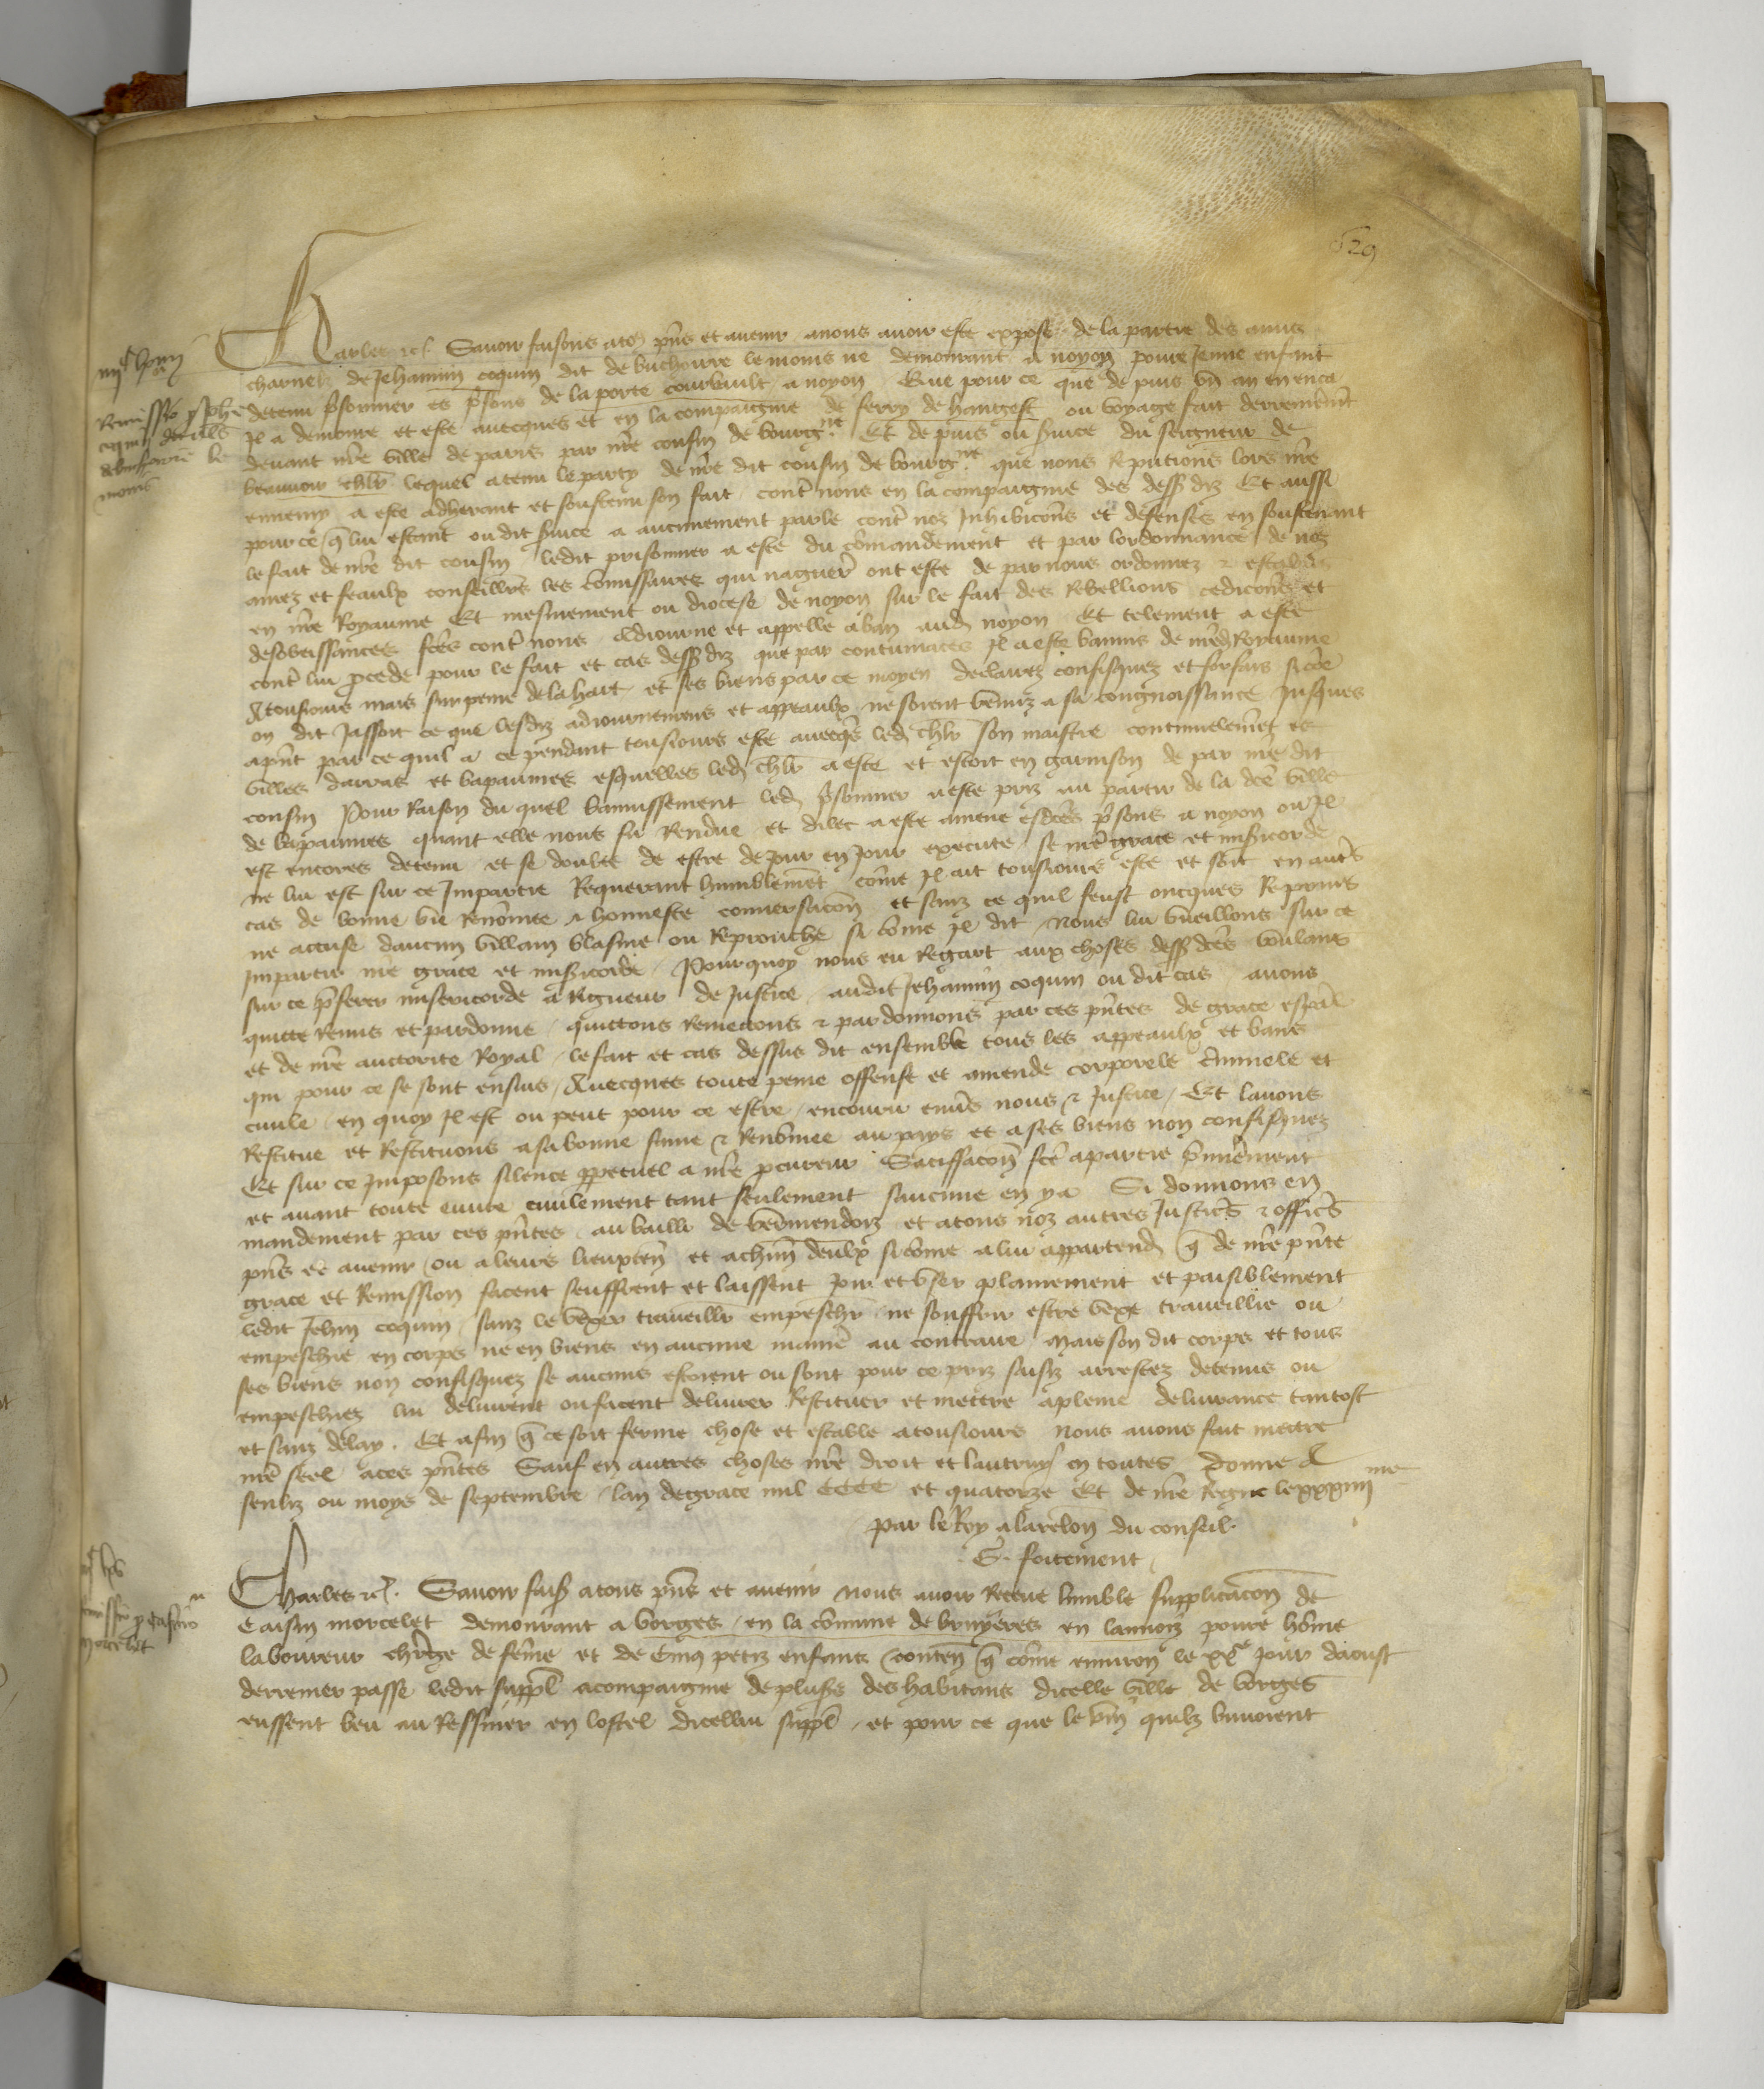 529
Charles etc. Savoir faisons a to9 pñs et avenir a nous avoir este expose de la partie des amis
charnelz de Jehannin coquin dit de buchoirre le moins ne demourant a noyon povre jenne enfant
detenu p̃sonnier es p̃sons de la porte courbault a noyon Que pour ce que depuis un an en enca
Il a demoure et este avecques et en la compaignie de ferry de hangest ou voyage fait derrenierem̃t
devant nr̃e ville de paris par nr̃e cousin de bourgne Et depuis ou s̃vice du seigneur de
beauvoir chl̃r lequel a tenu le party de nr̃e dit cousin de bourgne que nous Reputions lors nr̃e
ennemy a este adherant et soustenu son fait contr̃ nous en la compaignie des dess9 diz Et aussi
pour ce q̃ lui estant ou dit s̃vice a aucunement parle contr̃ noz Inhibicoñs et defenses en soustenant
le fait de nr̃e dit cousin ledit prisonnier a este du cõmandement et par lordonnance de noz
amez et feaulx conseillr̃s les cõmissaires qui nagueres ont este de par nous ordonnez et establiz
en nr̃e Royaume Et mesmement ou diocese de noyon sur le fait des Rebellions sedicoñs et
desobeissances fc̃es contr̃ nous Adiourne et appelle a ban aud noyon Et telement a este
contr̃ lui procede pour le fait et cas dess9 diz que par contumaces Il a este bannis de nr̃ed Royaume
A tousiours mais sur peine de la hart et ses biens par ce moyen declairez confisquez et forfais si cõe
on dit Jassoit ce que lesdiz adiournemens et appeaulx ne soient venuz a sa congnoissance Jusques
apñt par ce quil a ce pendant tousiours este avecqs led chl̃r son maistre continuelem̃t es
villes darras et bapaumes esquelles led chl̃r a este et estoit en garnison de par nr̃e dit
cousin Pour Raison du quel bannissement led p̃sonnier a este priz au partir de la dc̃e ville
de bapaumes quant elle nous fu Rendue et dilec a este amene esdc̃es p̃sons a noyon ou Il
est encores detenu et se doubte de estre de Jour en Jour execute se nr̃e grace et misericorde
ne lui est sur ce Impartie Requerant humblem̃t cõme Il ait tousiours este et soit en autr̃s
cas de bonne vie Renõmee et honneste conversacoñ et sanz ce quil feust oncques Reprins
ne accuse daucun villain blasme ou Reprouche si cõme Il dit Nous lui vueillons sur ce
Impartir nr̃e grace et misericorde Pourquoy nous eu Regart aux choses dess9 dc̃es voulans
sur ce p̃ferer misericorde a Rigueur de Justice audit Jehannin coquin ou dit cas avons
quicte Remis et pardonne quictons Remectons et pardonnons par ces pñtes de grace esp̃al
et de nr̃e auctorite Royal le fait et cas dessus dit ensemble tous les appeaulx et bans
qui pour ce se sont ensuis Avecques toute peine offense et amende corporele criminele et
civile en quoy Il est ou peut pour ce estre encouru envs̃ nous et Justice Et lavons
Restitue et Restituons a sa bonne fame et Renõmee au pays et a ses biens non confisquez
Et sur ce Imposons silence perpetuel a nr̃e procureur Satisfacoñ fc̃e a partie p̃mierement
et avant toute euvre civilement tant seulement saucune en y a Si donnons en
mandement par ces pñtes au bailli de vermendoiz et a tous noz autres Justicr̃s et officr̃s
pñs et avenir ou a leurs lieuxten̄ et achun̄ deulx si cõme a lui appartend q̃ de nr̃e pñte
grace et Remission facent seuffrent et laissent joir et user plainement et paisiblement
ledit Jehan coquin sanz le vexer traveillr̃ empeschr̃ ne souffrir estre vexe traveillie ou
empeschie en corps ne en biens en aucune manir̃e au contraire Mais son dit corps et tous
ses biens non confisquez se aucuns estoient ou sont pour ce priz saisiz arrestez detenus ou
empeschiez lui delivrent ou facent delivrer Restituer et mettre a pleine delivrance tantost
et sanz delay. Et afin q̃ ce soit ferme chose et estable a tousiours nous avons fait mectre
nr̃e seel a ces pñtes Sauf en autres choses nr̃e droit et lautruy en toutes Donne A
senliz ou moys de septembre lan de grace mil CCCC et quatorze Et de nr̃e Regne le xxxiiiime
par le Roy a la relon du conseil.
G. fortement
Charles etc. Savoir fais9 a tous pñs et avenir Nous avoir Receue lumble supplicacoñ de
Caisin morcelet demourant a vorges en la cõmune de bruyeres en lannoiz povre hõme
laboureur chr̃ge de fẽme et de Cinq petiz enfans conten̄ q̃ cõme environ le xxe Jour daoust
derrenier passe ledit suppl̃ acompaignie de plus9rs des habitans dicelle ville de vorges
eussent beu au Ressiner en lostel dicellui suppl̃ et pour ce que le vin quilz buvoient
Remissio p Joh̃e
coquin dicto
de buchoirre le
moins
morcelet